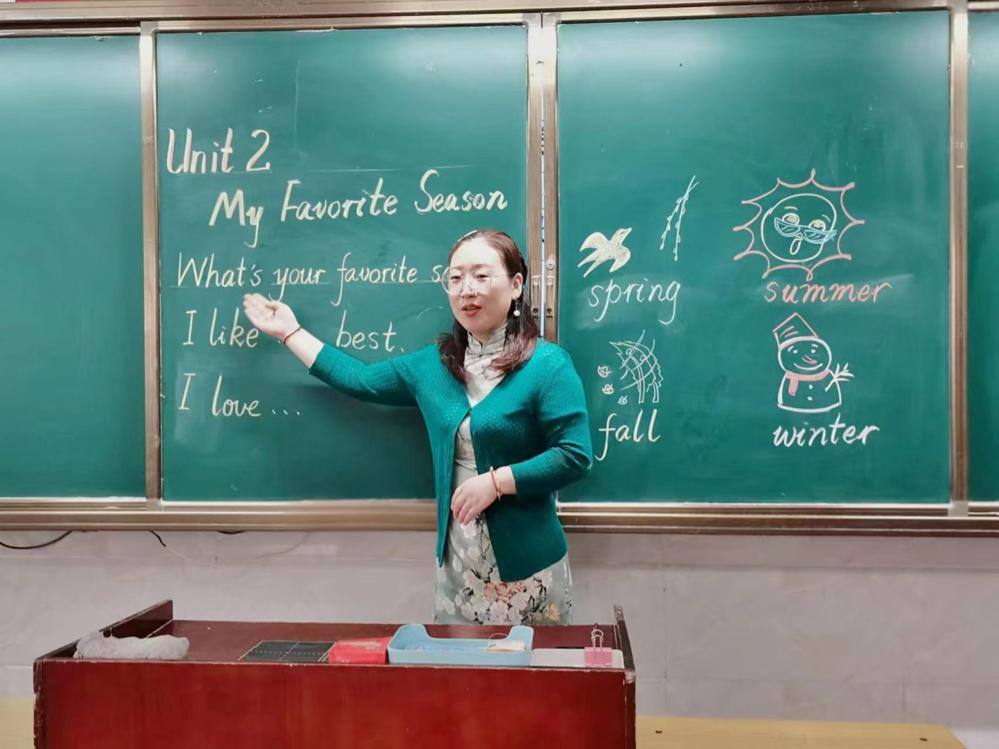 Unit 2
My Favorite Season
What's your favorite
I like best.
I love...
spring
summer
fall
winter